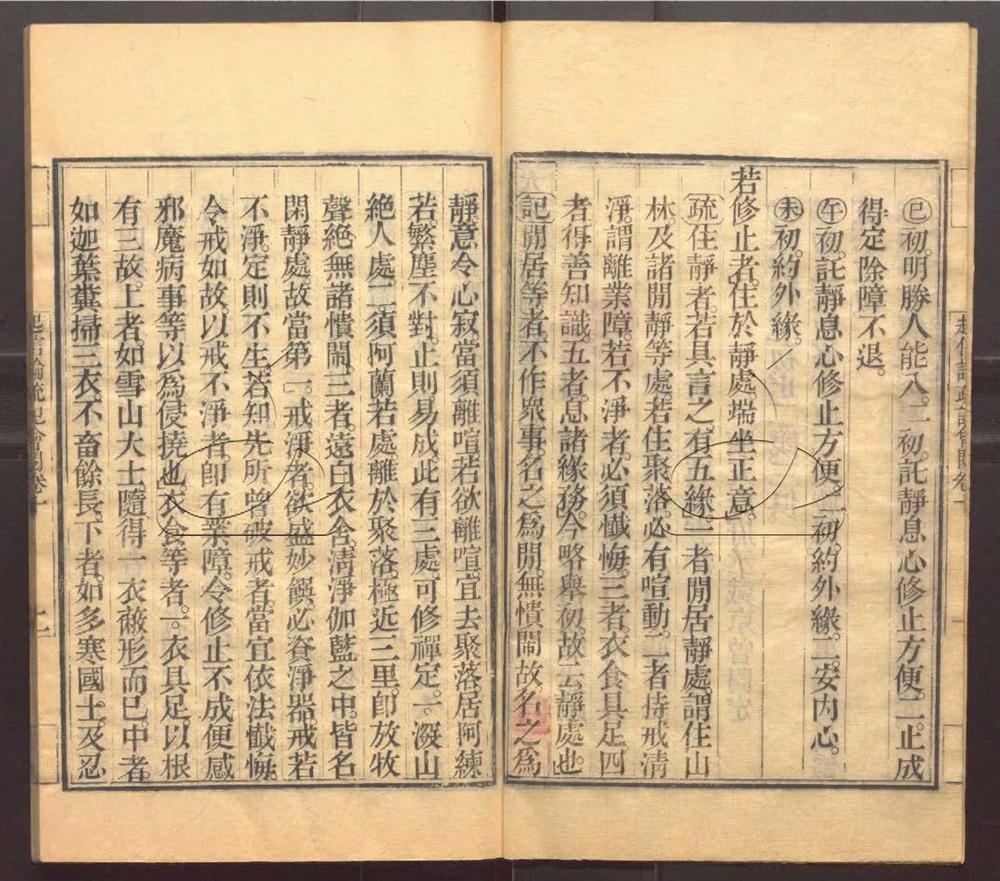 ㊁初。明勝人能入。二。初。託靜息心修止方便。二。止成
得定除障不退。
㊂初。託靜息心修止方便。二。初。約外緣。二。安內心。
㊃初。約外緣。
若修止者。住於靜處。端坐正意。
疏住靜者。若具言之。有五緣。一者閒居靜處。謂住山
林。及諸閒靜等處。若住聚落。必有喧動。二者持戒清
淨。謂離業障。若不淨者。必須懺悔。三者衣食具足。四
者得善知識。五者息諸緣務。今略舉初。故云靜處也。
記閒居等者。不作眾事。名之為閒。無憒鬧故。名之為
靜。意令心寂。當須離喧。若欲離喧。宜去聚落。居阿練
若。繁塵不對。止則易成。此有三處。可修禪定。一。深山
絕人處。二。須阿蘭若處。離於聚落。極近三里。即放牧
聲絕。無諸憒鬧。三者。遠白衣舍。清淨伽藍之中。皆名
閑靜處故。當第一。戒淨者。欲盛妙饌。必資淨器。戒若
不淨。定則不生。若知先所曾破戒者。當宜依法懺悔。
令戒如故。以戒不淨者。即有業障。令修止不成。便感
邪魔病事等。以為侵撓也。衣食等者。一。衣具足。以根
有三故。上者。如雪山大士。隨得一衣。蔽形而已。中者。
如迦葉糞掃三衣。不畜餘長。下者。如多寒國土。及忍